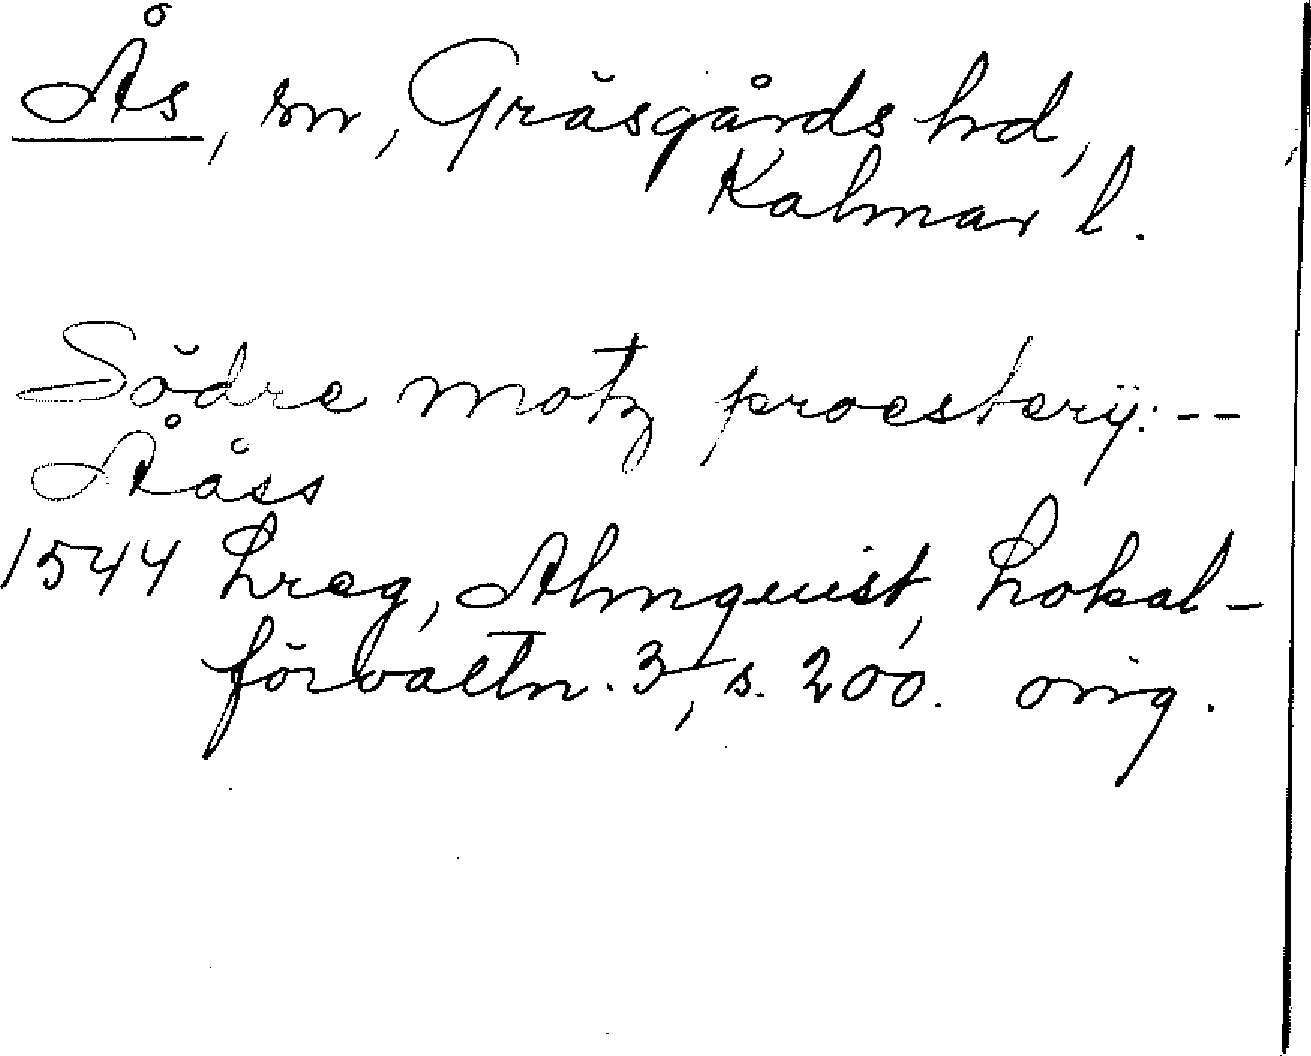 Ås, sn, Gräsgårds hd,
Kalmar l.
Södre motz proesterij: --
Ååss
1544 Lreg, Almquist, Lokal-
förvaltn. 3, s. 200. orig.